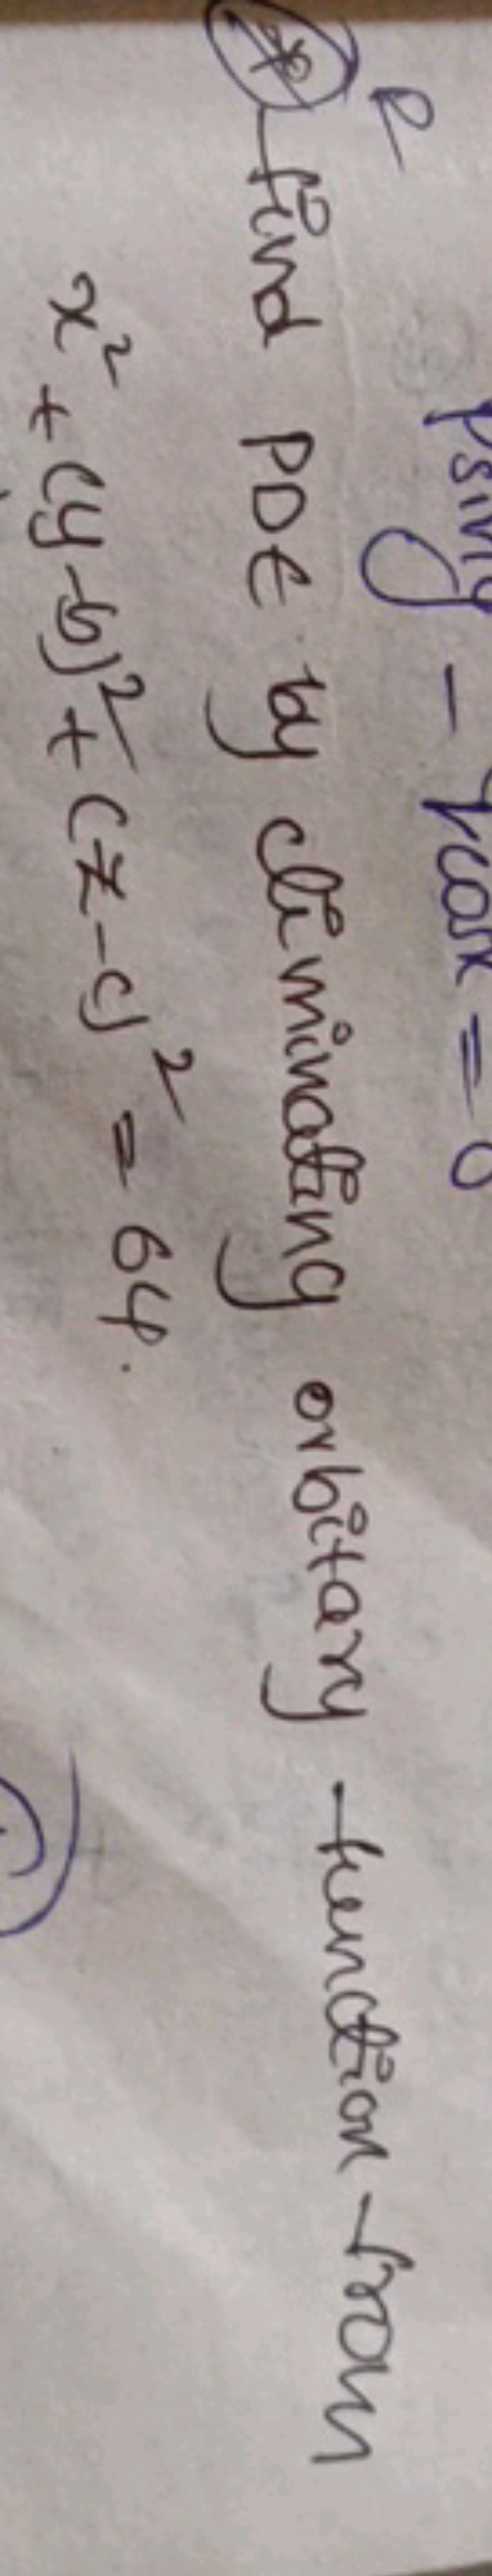 psiny - qcosx = 0
find PDE by climinating orbitary function from
x² + (y-b)² + (z-c)² = 64.